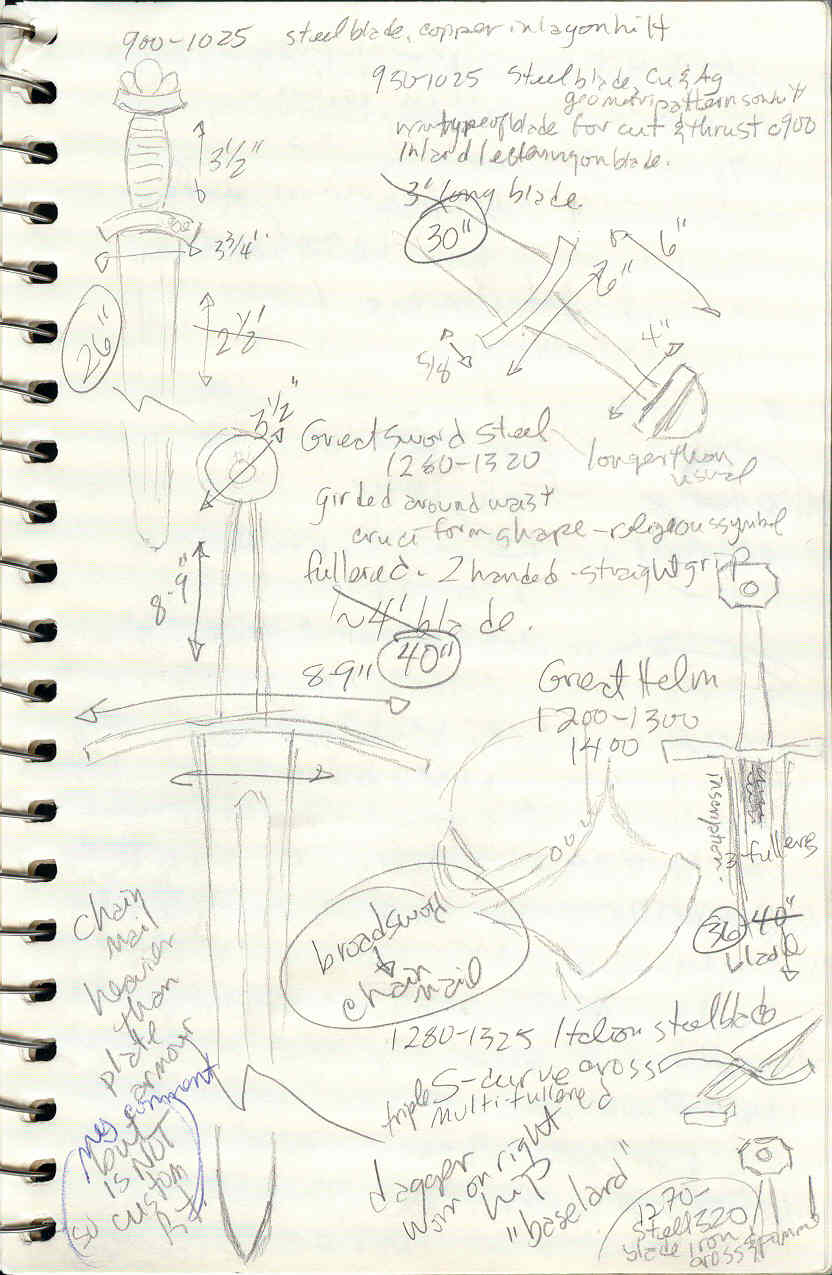 900-1025 steel blade, copper inlay on hilt
930-1025 Steel blade Cu & Ag
geometric patterns on hilt
type of blade for cut & thrust c900
Inlaid lettering on blade.
3' long blade.
30"
3½"
3¾"
2⅛"
26"
6"
6"
4"
5/8
longer than
usual
3½"
Great Sword Steel
1280-1320
girded around waist
cruciform shape - religious symbol
fullered - 2 handed - straight grip
~4' blade.
40"
8-9"
8-9"
Great Helm
1200-1300
1400
inscription -
3-fullers
36 40"
blade
broadsword
chain
mail
chain
mail
heavier
than
plate
armour
my comment
but
is NOT
so custom
fit
1280-1325 Italian steel blade
triple S-curve cross
Multi-fullered
dagger
worn on right
hip
"baselard"
1270-
1320
steel
blade iron
cross & pommel